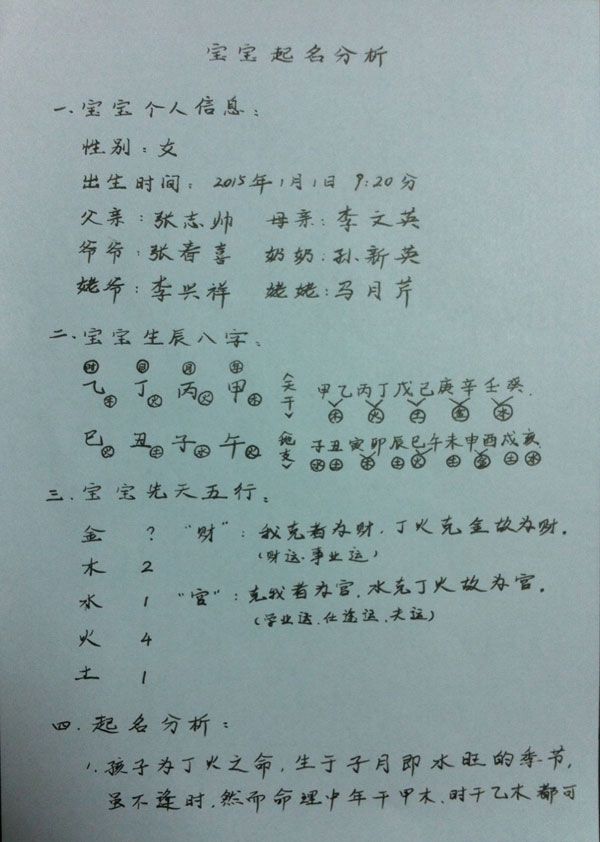 宝宝起名分析
一、宝宝个人信息：
性别：女
出生时间：2015年1月1日 9:20分
父亲：张志帅 母亲：李文英
爷爷：张春喜 奶奶：孙新英
姥爷：李兴祥 姥姥：马月芹
二、宝宝生辰八字：
时 日 月 年
乙木 丁火 丙火 甲木 〈天干〉 甲乙丙丁戊己庚辛壬癸.
木 火 土 金 水
巳火 丑土 子水 午火 〈地支〉 子丑寅卯辰巳午未申酉戌亥
水 土 木 土 火 土 金 土 水
三、宝宝先天五行：
金 ? “财”：我克者为财，丁火克金故为财。
（财运、事业运）
木 2
水 1 “官”：克我者为官，水克丁火故为官。
（学业运、仕途运、夫运）
火 4
土 1
四、起名分析：
1、孩子为丁火之命，生于子月即水旺的季节，
虽不逢时，然而命理中年干甲木，时干乙木都可